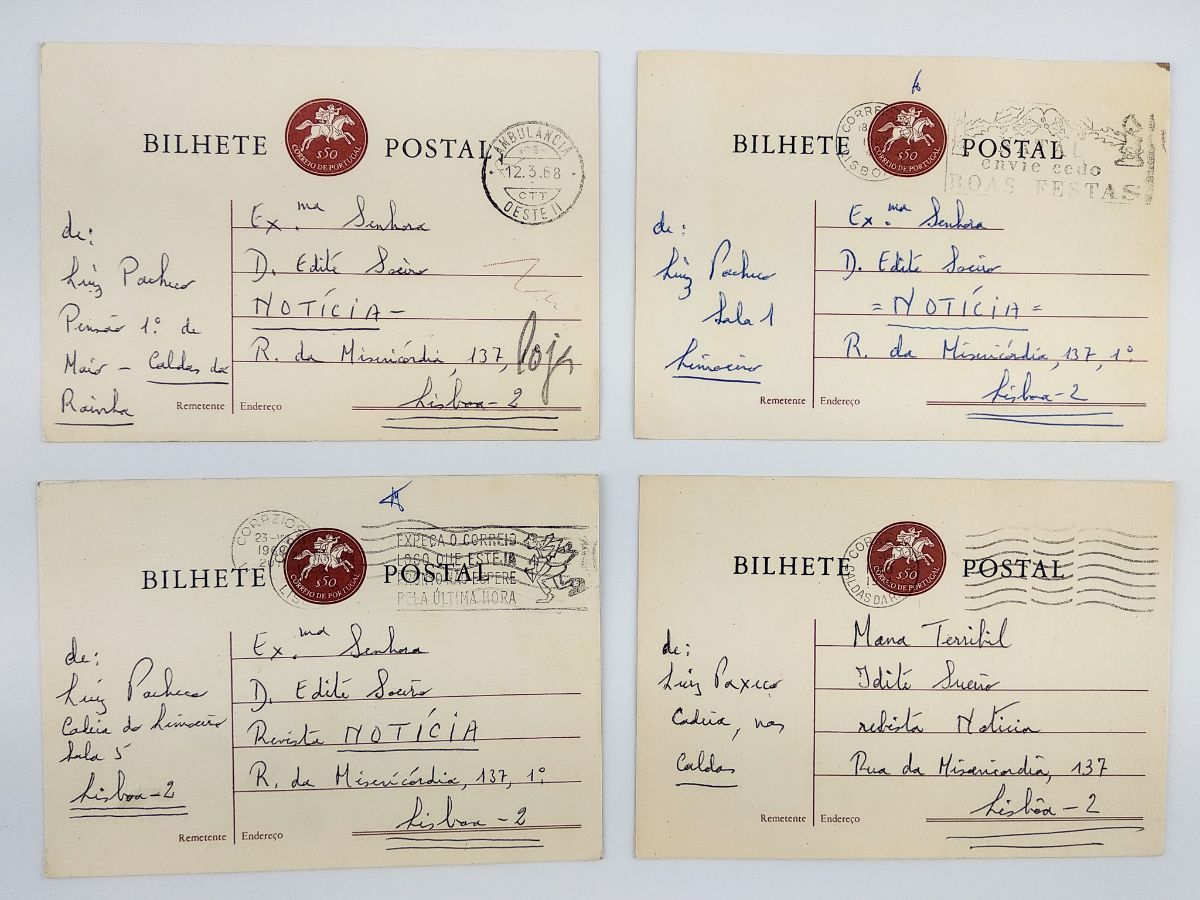 BILHETE POSTAL
$50
CORREIO DE PORTUGAL
AMBULÂNCIA
12.3.68
CTT
OESTE II
de:
Luiz Pacheco
Pensão 1º de
Maio – Caldas da
Rainha
Remetente
Ex.ma Senhora
D. Edite Soeiro
NOTÍCIA –
R. da Misericórdia, 137,
Lisboa – 2
Endereço
BILHETE POSTAL
$50
CORREIO DE PORTUGAL
CORRE
18
LISBO
NATAL
envie cedo
BOAS FESTAS
de:
Luiz Pacheco
Sala 1
Limoeiro
Remetente
Ex.ma Senhora
D. Edite Soeiro
= NOTÍCIA =
R. da Misericórdia, 137, 1º
Lisboa – 2
Endereço
BILHETE POSTAL
$50
CORREIO DE PORTUGAL
CORREIO
23
EXPEÇA O CORREIO
LOGO QUE ESTEJA
PRONTO NÃO ESPERE
PELA ÚLTIMA HORA
de:
Luiz Pacheco
Cadeia do Limoeiro
Sala 5
Lisboa – 2
Remetente
Ex.ma Senhora
D. Edite Soeiro
Revista NOTÍCIA
R. da Misericórdia, 137, 1º
Lisboa – 2
Endereço
BILHETE POSTAL
$50
CORREIO DE PORTUGAL
CALDAS DA RA
de:
Luiz Paxeco
Cadeia, nas
Caldas
Remetente
Mana Terribil
Idite Sueiro
rebista Noticia
Rua da Misaricordia, 137
Lisbôa – 2
Endereço